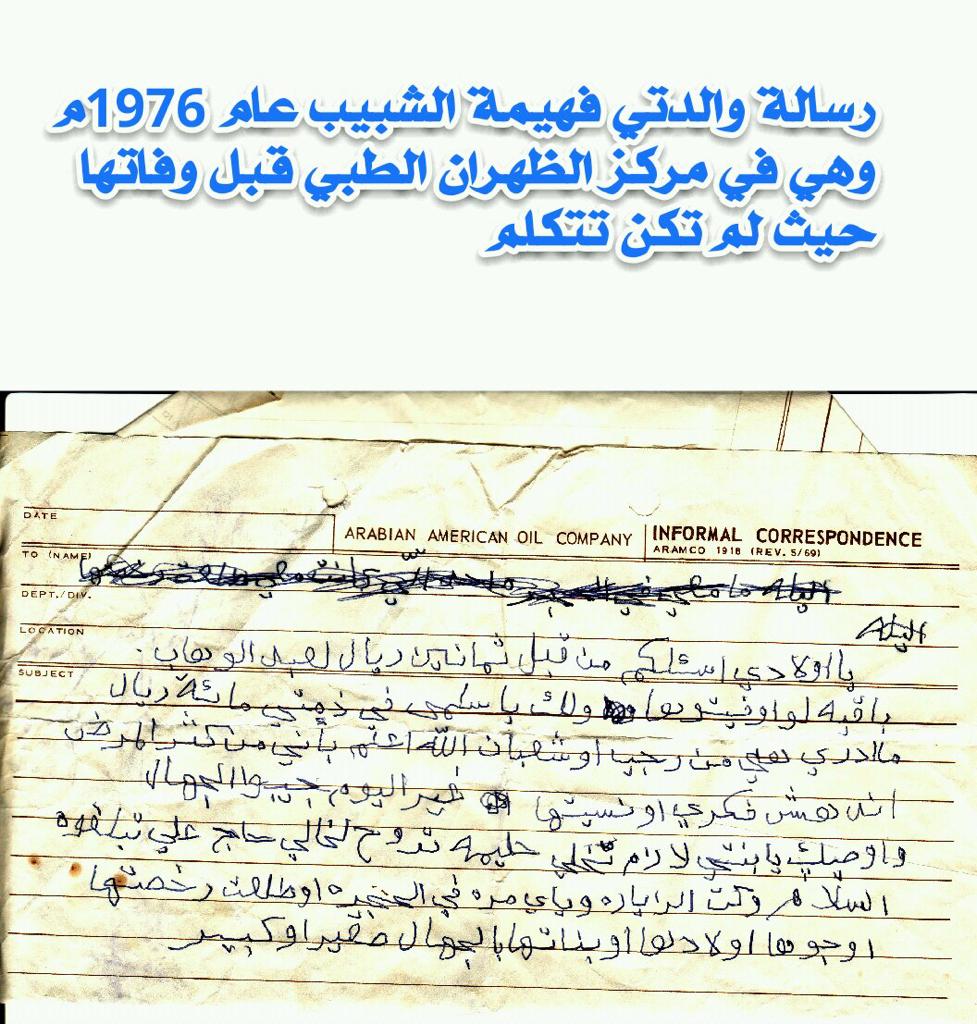 رسالة والدتي فهيمة الشبيب عام 1976م
وهي في مركز الظهران الطبي قبل وفاتها
حيث لم تكن تتكلم
DATE
ARABIAN AMERICAN OIL COMPANY
INFORMAL CORRESPONDENCE
ARAMCO 1918 (REV. 5/69)
TO (NAME)
DEPT./DIV.
اليله
LOCATION
يا اولادي اسئلكم من قبل ثمانين ريال لعبد الوهاب
SUBJECT
باقيه لو اوفيتوها ولك يا سلمى في ذمتي مائة ريال
ماادري هي من رجب او شعبان الله اعلم بأني من كثر المرض
اندهش فكري او نسيتها غير اليوم جيبوا الجهال
واوصيك يا بنتي لازم تخلي حليمه تروح لخالي حاج علي تبلغوه
السلام وكت الزياره وياي مره في الحنجره او طلعت رخصتها
اوجوها اولادها او بناتها بالجهال صقير او كبير